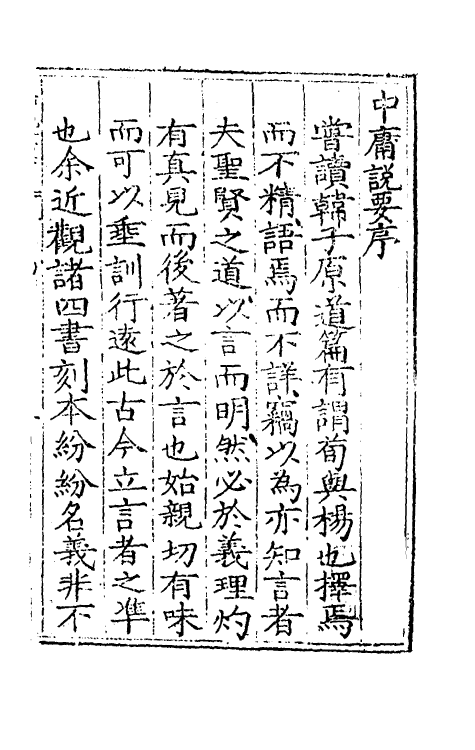 中庸說要序
嘗讀韓子原道篇有謂荀與楊也擇焉
而不精語焉而不詳竊以為亦知言者
夫聖賢之道以言而明然必於義理灼
有真見而後著之於言也始親切有味
而可以垂訓行遠此古今立言者之準
也余近觀諸四書刻本紛紛名義非不